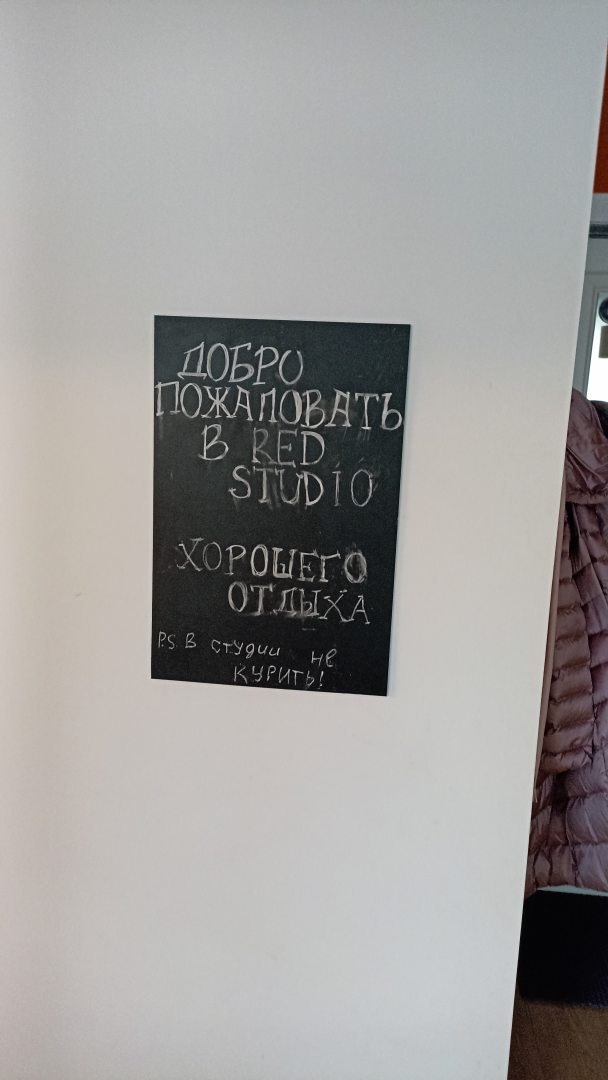 ДОБРО
ПОЖАЛОВАТЬ
В RED
STUDIO
ХОРОШЕГО
ОТДЫХА
P.S. В студии не
КУРИТЬ!